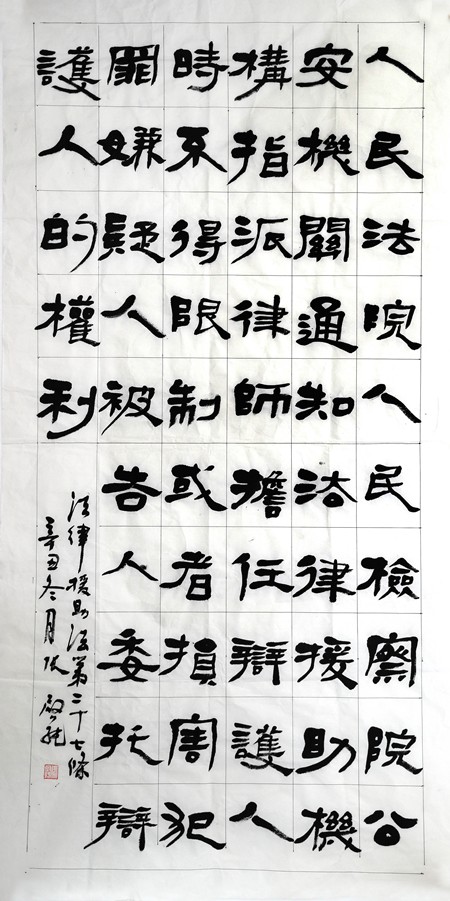 人民法院人民檢察院公
安機關通知法律援助機
構指派律師擔任辯護人
時不得限制或者損害犯
罪嫌疑人被告人委托辯
護人的權利
法律援助法第二十七條
辛丑冬月